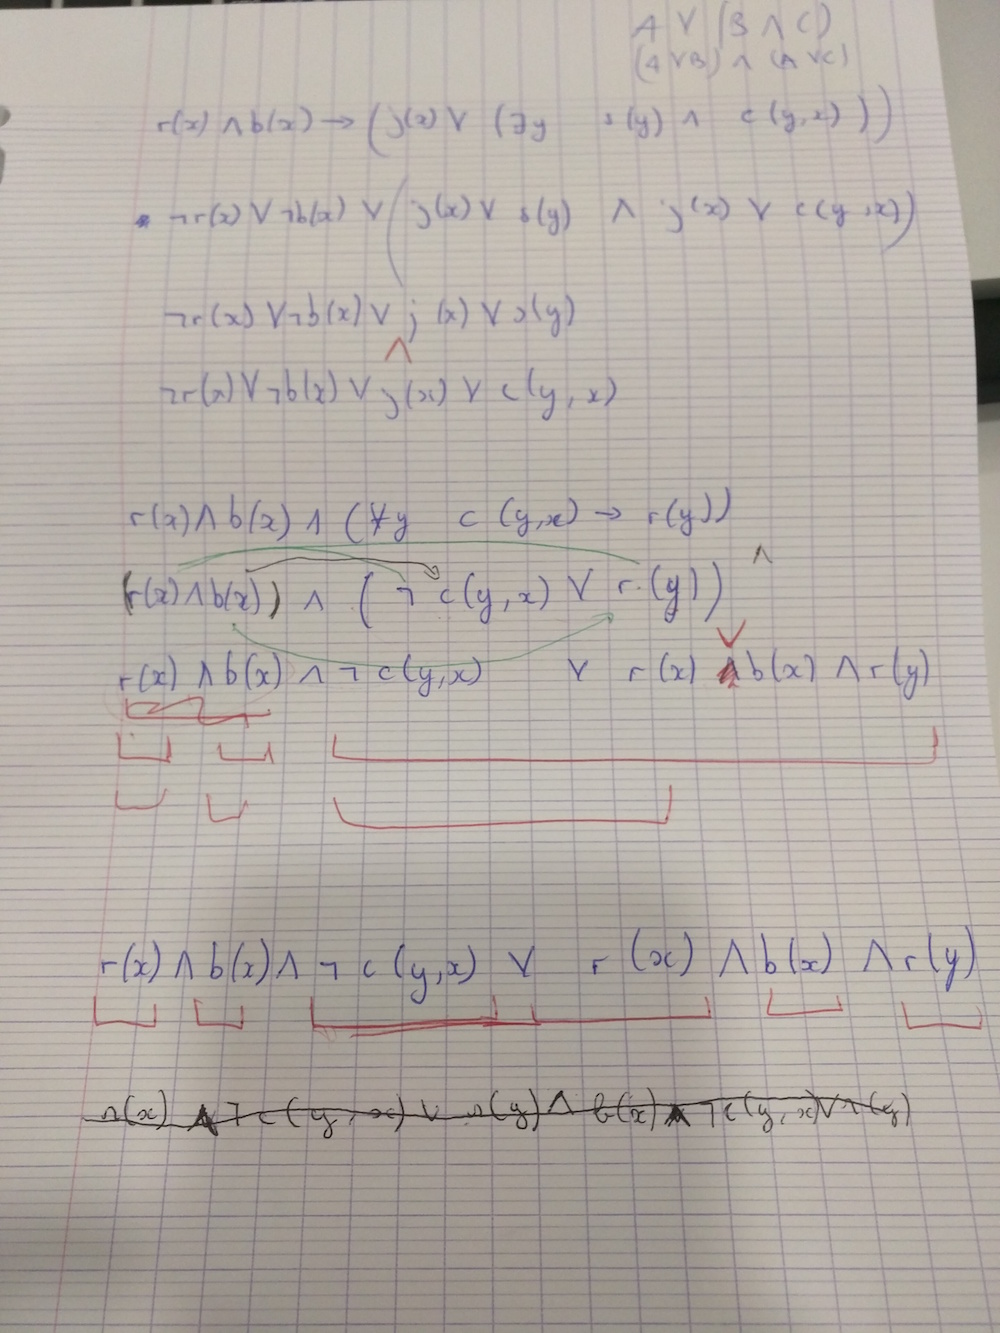 A ∨ (B ∧ C)
(A ∨ B) ∧ (A ∨ C)
r(x) ∧ b(x) → (j(x) ∨ (∃y s(y) ∧ c(y,x)))
¬r(x) ∨ ¬b(x) ∨ (j(x) ∨ s(y) ∧ j(x) ∨ c(y,x))
¬r(x) ∨ ¬b(x) ∨ j(x) ∨ s(y)
∧
¬r(x) ∨ ¬b(x) ∨ j(x) ∨ c(y,x)
r(x) ∧ b(x) ∧ (∀y c(y,x) → r(y))
∧
(r(x) ∧ b(x)) ∧ (¬c(y,x) ∨ r(y))
∨
r(x) ∧ b(x) ∧ ¬c(y,x) ∨ r(x) ∧ b(x) ∧ r(y)
r(x) ∧ b(x) ∧ ¬c(y,x) ∨ r(x) ∧ b(x) ∧ r(y)
r(x) ∧ ¬c(y,x) ∨ r(y) ∧ b(x) ∧ ¬c(y,x) ∨ r(y)